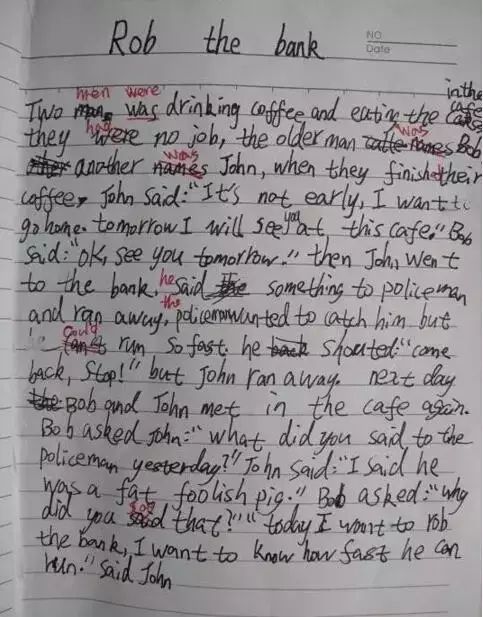 Rob the bank
NO
Date
men were in the
Two man was drinking coffee and eating the cafe
had was
they were no job, the older man names Bob
was
another names John, when they finished their
coffee, John said:"It's not early, I want to
go home. tomorrow I will see you at this cafe." Bob
said:"OK, see you tomorrow." then John went
to the bank, he said something to policeman
and ran away, the policeman wanted to catch him but
could
he run so fast. he back shouted:"come
back, stop!" but John ran away. next day
the Bob and John met in the cafe again.
Bob asked John:"what did you said to the
policeman yesterday?" John said:"I said he
was a fat foolish pig." Bob asked:"why
say
did you said that?" "today I want to rob
the bank, I want to know how fast he can
run." said John